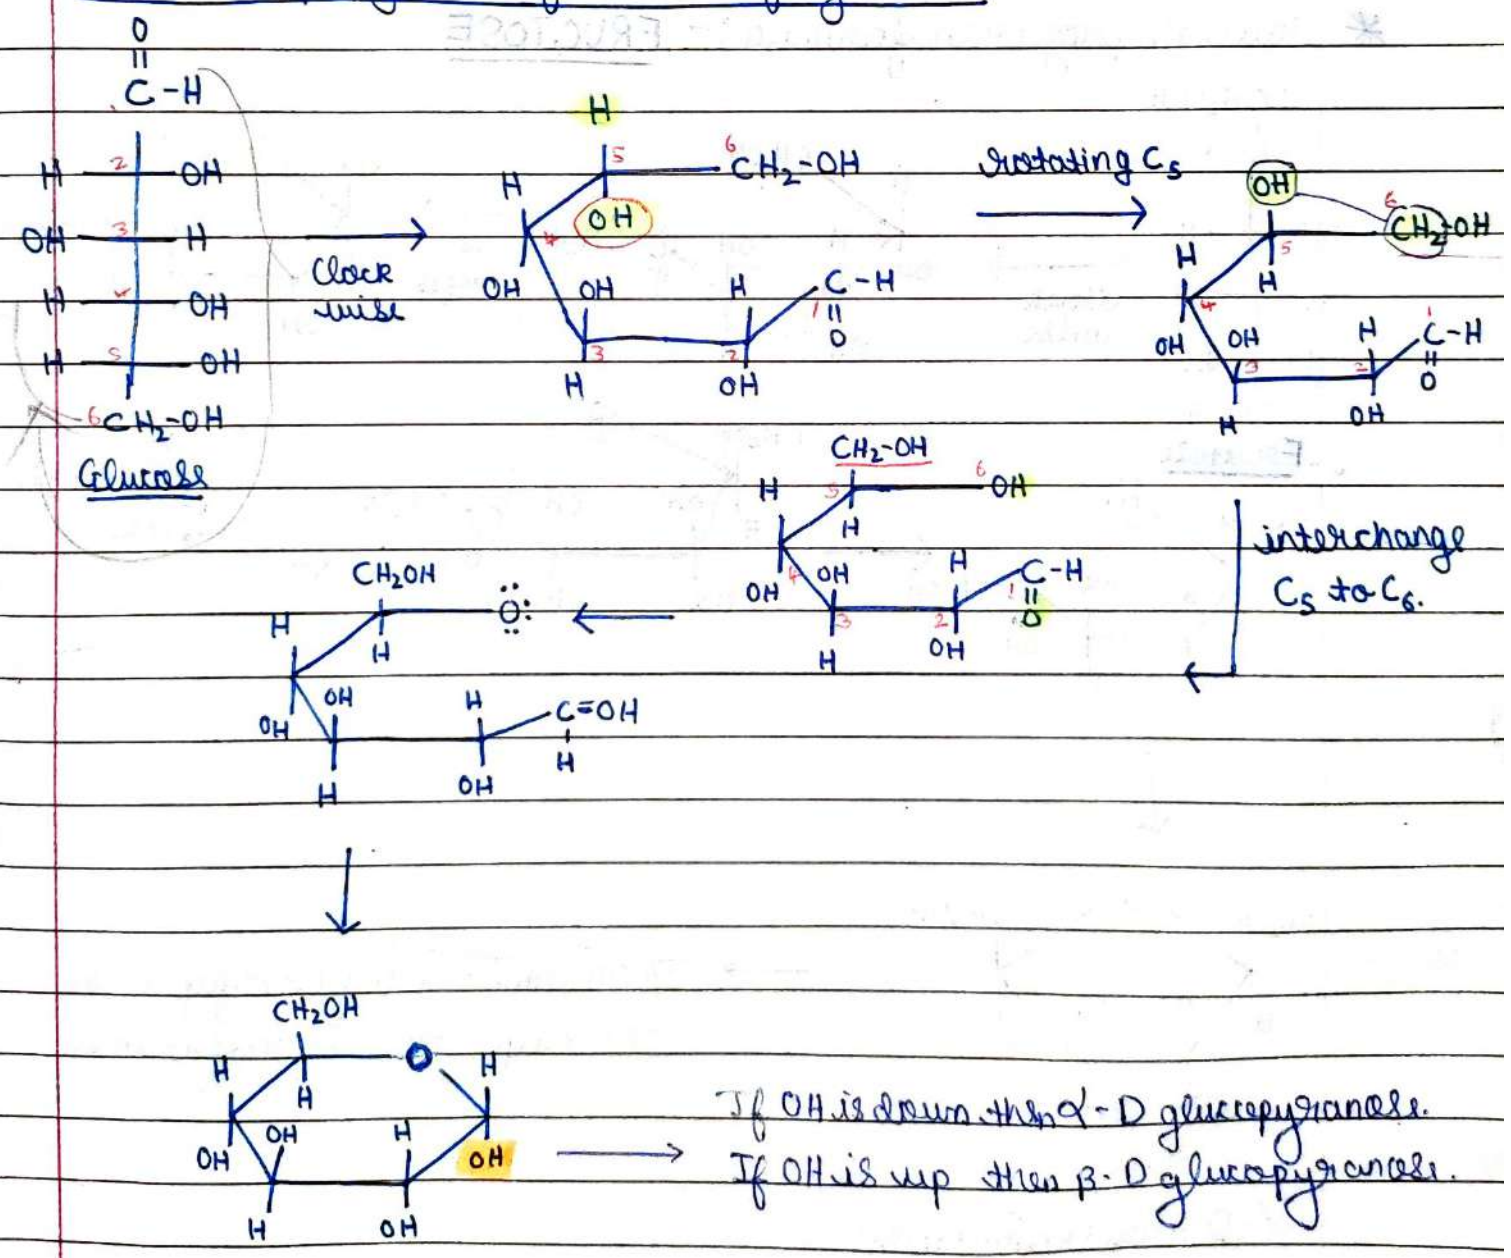 O
C-H
H 2 OH
OH 3 H
H 4 OH
H 5 OH
6 CH2-OH
Glucose
Clock
wise
H
5 6 CH2-OH
H
OH
4
OH OH H C-H
1
O
3 2
H OH
rotating C5
OH
6 CH2-OH
5
H
H
4
OH OH H 1 C-H
O
3 2
H OH
interchange
C5 to C6.
CH2-OH
H 5 6 OH
H
4 OH H C-H
OH 1 O
3 2
H OH
CH2OH
H O
H
OH H C=OH
OH H
H OH
CH2OH
H O H
H
OH OH H OH
H OH
If OH is down then α-D glucopyranose.
If OH is up then β-D glucopyranose.